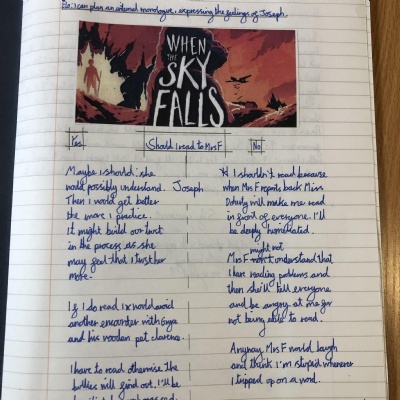 Lo: I can plan an internal monologue, expressing the feelings of Joseph.
WHEN
THE
SKY
FALLS
Yes
Should I read to Mrs F
No
Maybe I should: she
would possibly understand.
Then I would get better
the more I practice.
It might build our turst
in the process as she
may feel that I turst her
more.
If I do read I would avoid
another encounter with
and his wooden pet clarence.
I have to read otherwise the
bullies will find out. I'll be
Joseph
I shouldn't read because
when Mrs F reports back Miss
Doherty will make me read
in front of everyone. I'll
be deeply humiliated.
might not
Mrs F won't understand that
I have reading problems and
then she'll tell everyone
and be angry at me for
not being able to read.
Anyway Mrs F would laugh
and think I'm stupid whenever
I tripped up on a word.